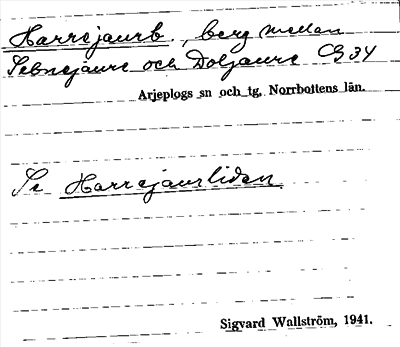 Harrejaurb., berg mellan
Sebnejaure och Doljaure CG 34
Arjeplogs sn och tg, Norrbottens län.
Se Harrejaurliden
Sigvard Wallström, 1941.